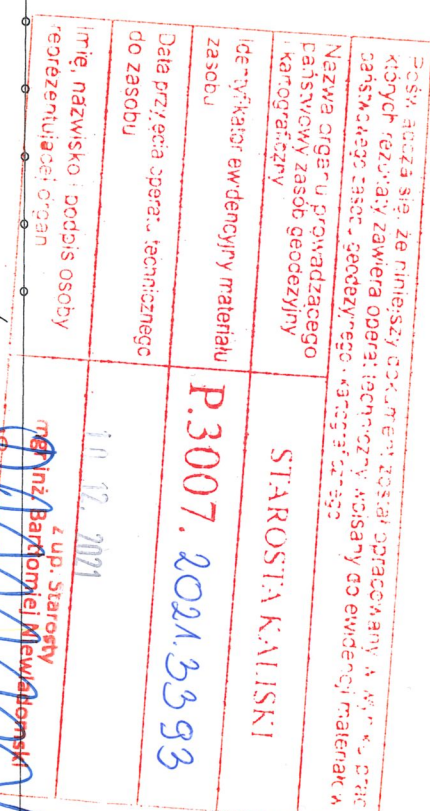 Poświadcza się, że niniejszy dokument został opracowany w wyniku prac
których rezultaty zawiera operat techniczny wpisany do ewidencji materiałów
państwowego zasobu geodezyjnego i kartograficznego
Nazwa organu prowadzącego
państwowy zasób geodezyjny
i kartograficzny
STAROSTA KALISKI
Identyfikator ewidencyjny materiału
zasobu
P.3007.2021.3393
Data przyjęcia operatu technicznego
do zasobu
10.12.2021
Imię, nazwisko i podpis osoby
reprezentującej organ
z up. Starosty
mgr inż. Bartłomiej Niewiadomski